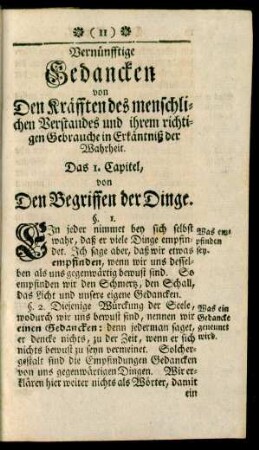 (11)
Vernünfftige
Gedancken
von
Den Kräfften des menschli-
chen Verstandes und ihrem richti-
gen Gebrauche in Erkäntniß der
Wahrheit.
Das 1. Capitel,
von
Den Begriffen der Dinge.
§. 1.
EIn jeder nimmet bey sich selbst
wahr, daß er viele Dinge empfin-
det. Ich sage aber, daß wir etwas
empfinden, wenn wir uns dessel-
ben als uns gegenwärtig bewust sind. So
empfinden wir den Schmertz, den Schall,
das Licht und unsere eigene Gedancken.
Was em-
pfinden
sey.
§. 2. Diejenige Würckung der Seele,
wodurch wir uns bewust sind, nennen wir
einen Gedancken: denn jederman saget,
er dencke nichts, zu der Zeit, wenn er sich
nichts bewust zu seyn vermeinet. Solcher-
gestalt sind die Empfindungen Gedancken
von uns gegenwärtigen Dingen. Wir er-
klären hier weiter nichts als Wörter, damit
ein
Was ein
Gedancke
genennet
wird.